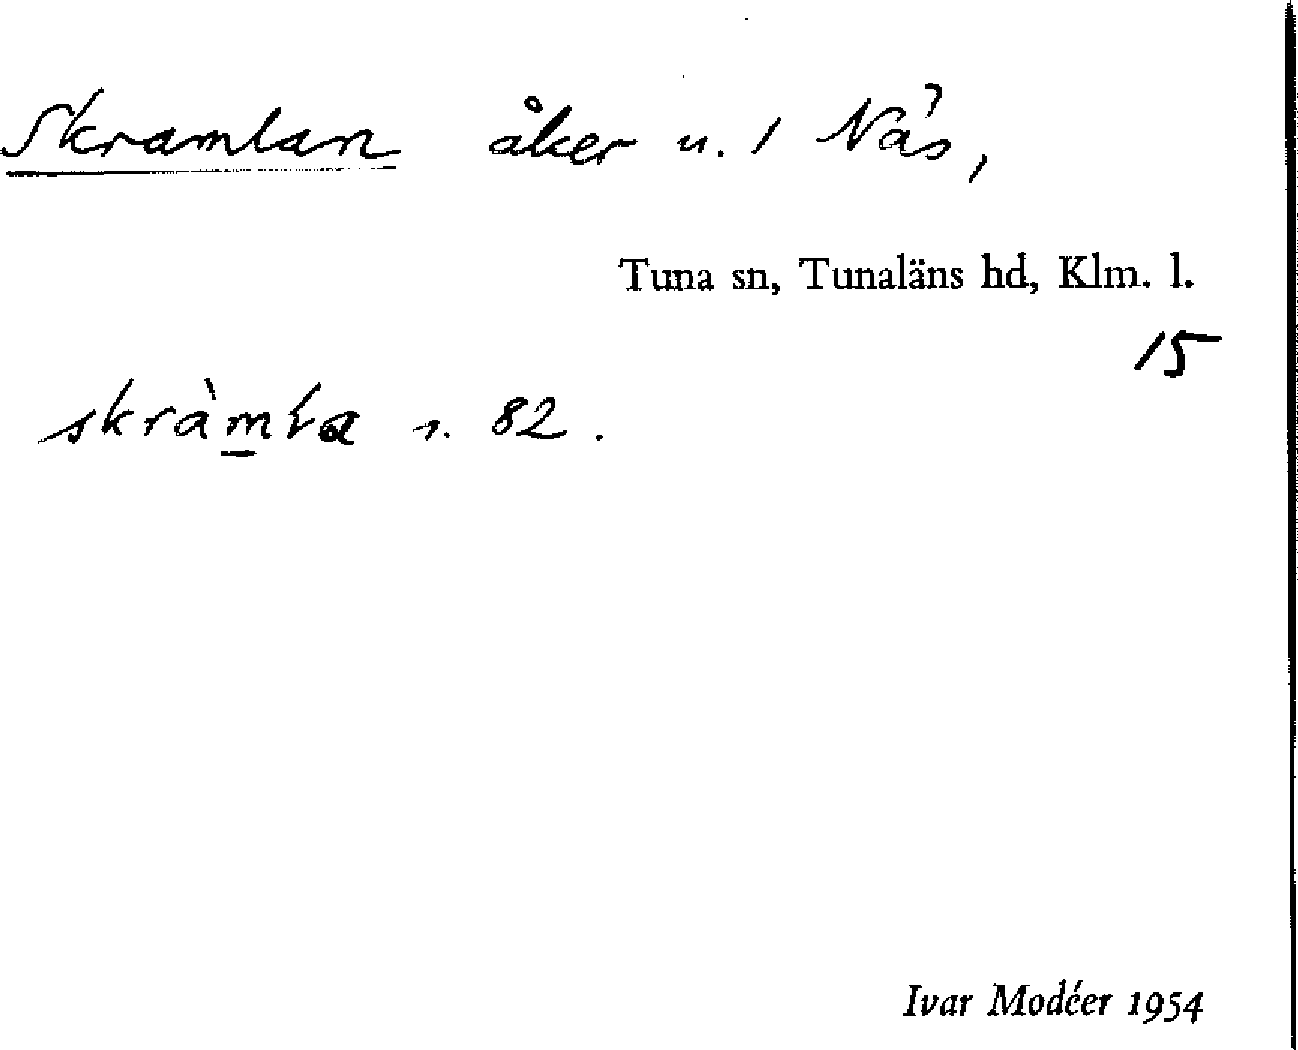 Skramlan åker u. 1 Näs,
Tuna sn, Tunaläns hd, Klm. l.
15
s. 82.
Ivar Modéer 1954